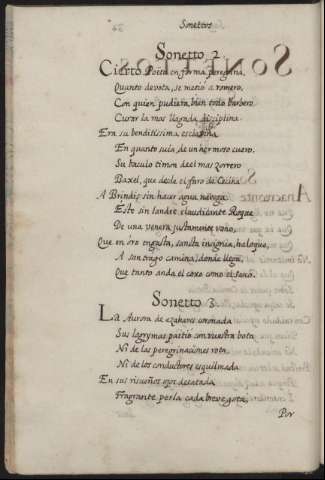 Sonettos
Sonetto 2.
Cierto Poeta en forma peregrina,
Quanto devota, se metio a romero,
Con quien pudiera bien todo barbero
Curar la mas llagada disciplina.
Era su benditissima esclavina
En quanto suia, de un hermoso cuero,
Su baculo timon de el mas zorrero
Baxel, que desde el faro de Cecina
A Brindis sin hacer agua navega.
Este sin landre claudicante Roque
De una venera justamente vano,
Que en oro engasta, sancta insignia, haloque,
A san trago camina, donde llega,
Que tanto anda el coxo como el sano.
Sonetto 3.
La Aurora de azahares coronada
Sus lagrymas partio con vuestra bota,
Ni de las peregrinaciones rota,
Ni de los conductores esquilmada
En sus risueños ojos desatada
Fragrante perla cada breve gota,
Por